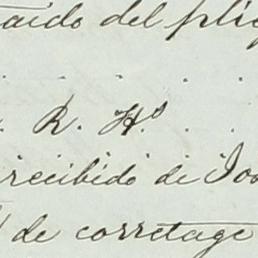 taido del plie
. R. Hº . .
recibido de Jos
de corretage